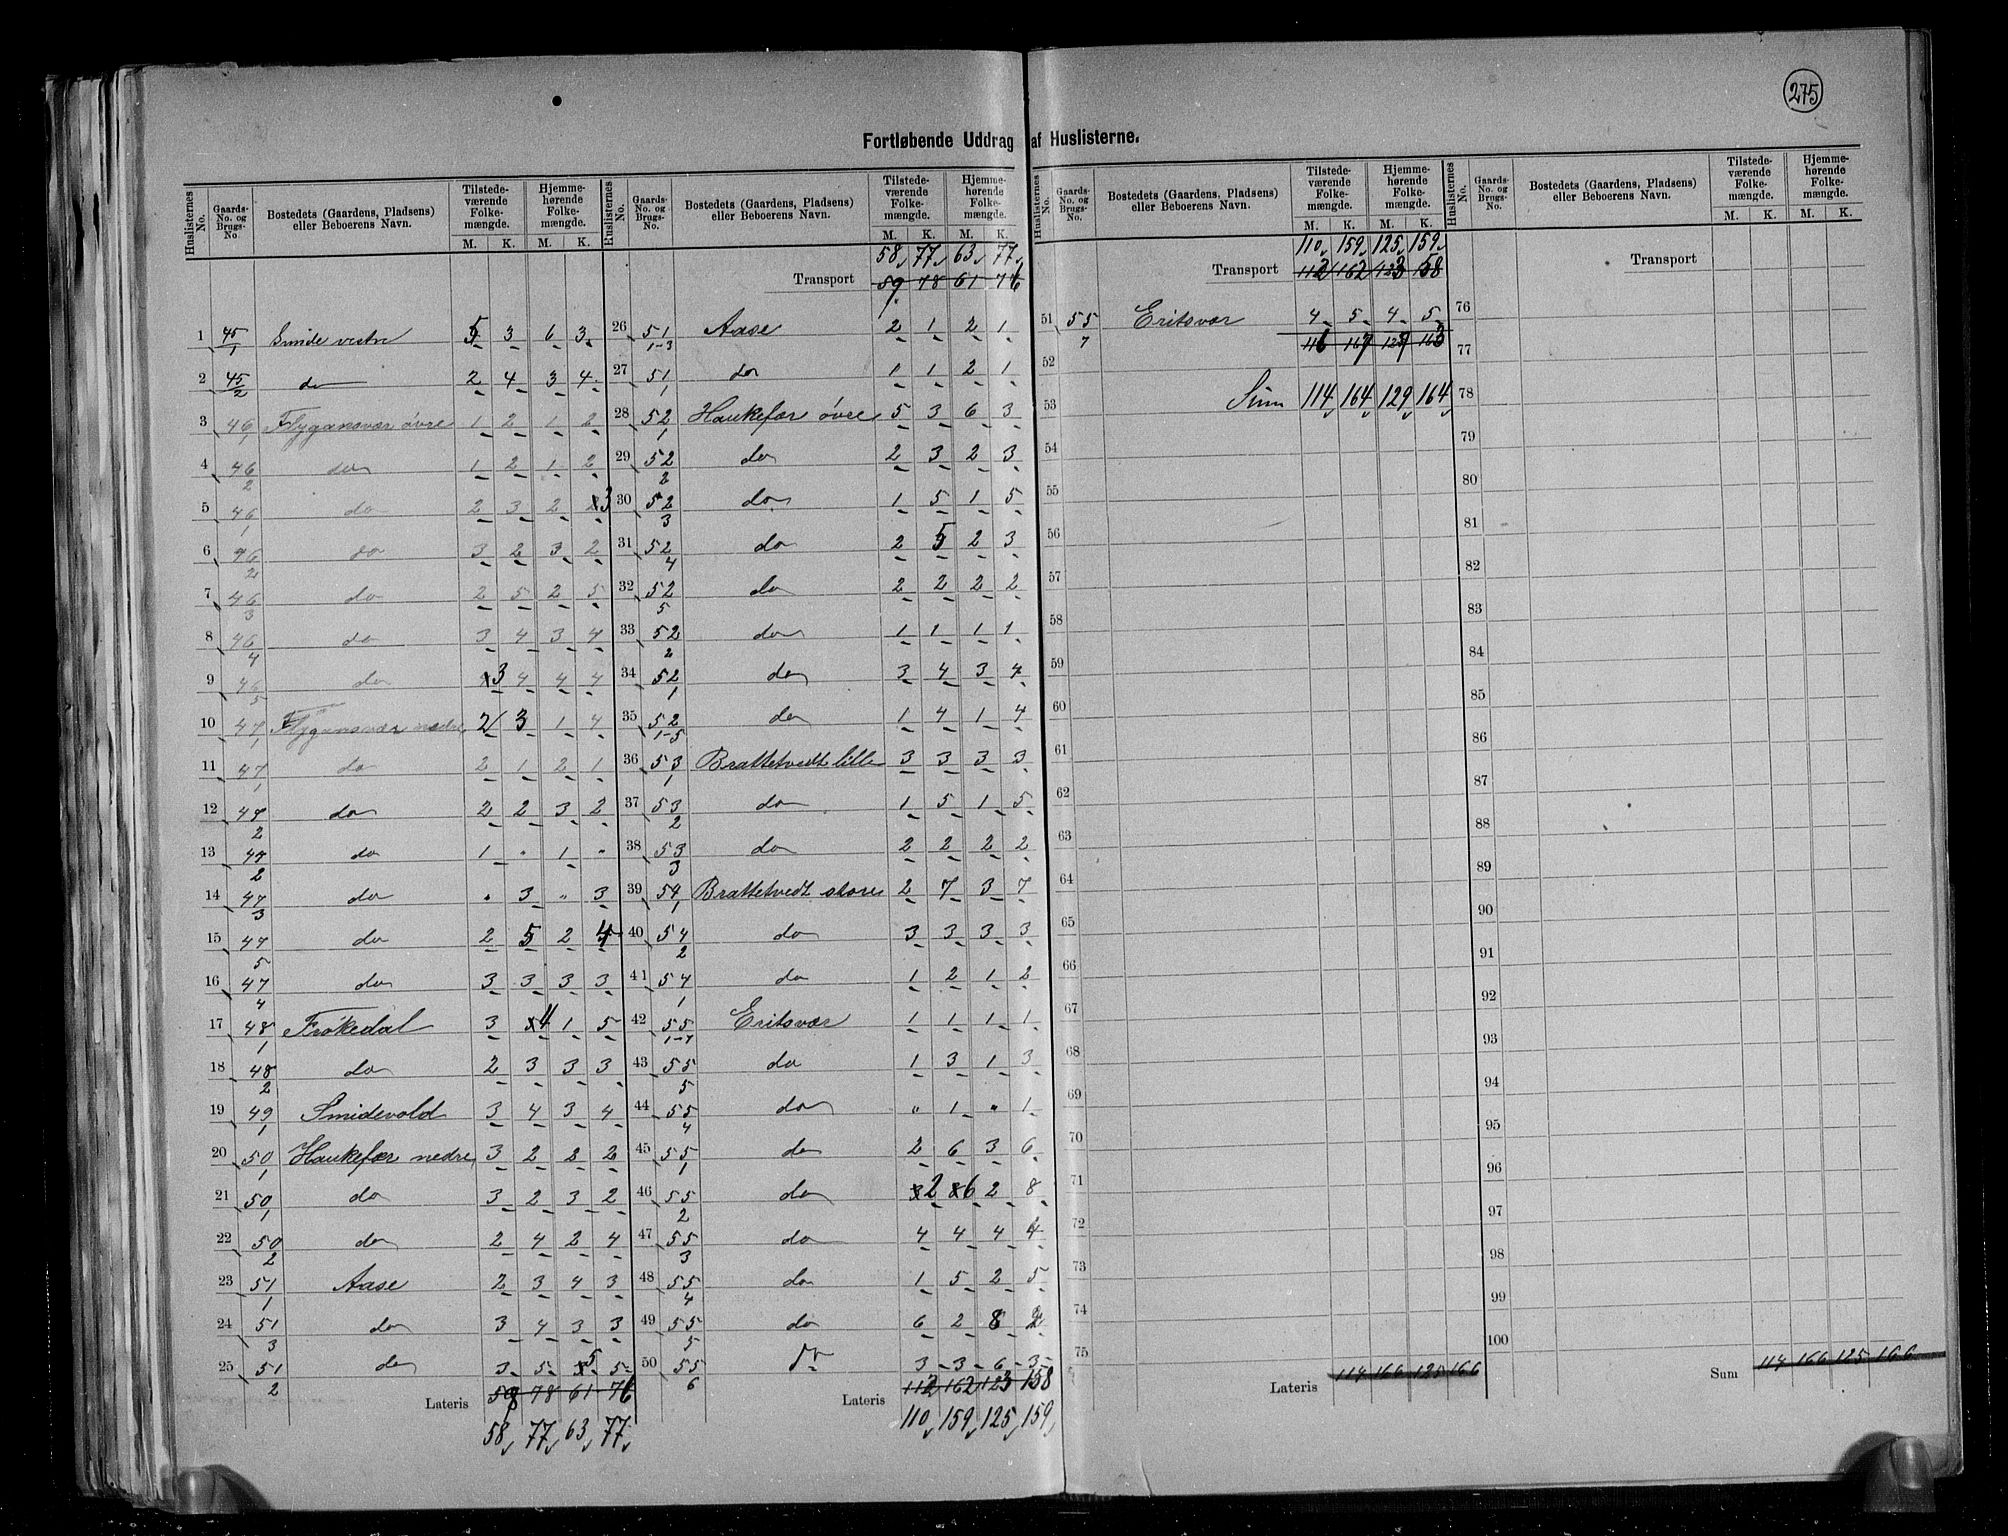 275
Fortløbende Uddrag af Huslisterne.
Huslisternes No. Gaards-No. og Brugs-No. Bostedets (Gaardens, Pladsens) eller Beboerens Navn. Tilstedeværende Folkemængde. M. K. Hjemmehørende Folkemængde. M. K.
1 45/1 Sminde vestre 5 3 6 3
2 45/2 do 2 4 3 4
3 46/1 Flygansvær øvre 1 2 1 2
4 46/2 do 1 2 1 2
5 46/1 do 2 3 2 3
6 46/2 do 3 2 3 2
7 46/3 do 2 5 2 5
8 46/4 do 3 4 3 4
9 46/5 do 3 4 4 4
10 47/1 Flygansvær nedre 2 3 1 4
11 47/1 do 2 1 2 1
12 47/2 do 2 2 3 2
13 47/2 do 1 " 1 "
14 47/3 do " 3 " 3
15 47/5 do 2 5 2 4
16 47/4 do 3 3 3 3
17 48/1 Frøkedal 3 4 1 5
18 48/2 do 2 3 3 3
19 49/1 Smidevold 3 4 3 4
20 50/1 Haukefær nedre 3 2 2 2
21 50/1 do 3 2 3 2
22 50/2 do 2 4 2 4
23 51/1 Aase 2 3 4 3
24 51/3 do 3 4 3 3
25 51/2 do 3 5 5 5
Lateris 59 78 61 76
58 77 63 77
Huslisternes No. Gaards-No. og Brugs-No. Bostedets (Gaardens, Pladsens) eller Beboerens Navn. Tilstedeværende Folkemængde. M. K. Hjemmehørende Folkemængde. M. K.
58 77 63 77
Transport 59 78 61 76
26 51/1-3 Aase 2 1 2 1
27 51/1 do 1 1 2 1
28 52/1 Haukefær øvre 5 3 6 3
29 52/2 do 2 3 2 3
30 52/3 do 1 5 1 5
31 52/4 do 2 5 2 3
32 52/5 do 2 2 2 2
33 52/2 do 1 1 1 1
34 52/1 do 3 4 3 4
35 52/1-5 do 1 4 1 4
36 53/1 Brattetvedt lille 3 3 3 3
37 53/2 do 1 5 1 5
38 53/3 do 2 2 2 2
39 54/1 Brattetvedt store 2 7 3 7
40 54/2 do 3 3 3 3
41 54/1 do 1 2 1 2
42 55/1-7 Eritsvær 1 1 1 1
43 55/5 do 1 3 1 3
44 55/4 do " 1 " 1
45 55/1 do 2 6 3 6
46 55/2 do 2 6 2 8
47 55/3 do 4 4 4 4
48 55/4 do 1 5 2 5
49 55/5 do 6 2 8 2
50 55/6 do 3 3 6 3
Lateris 112 162 123 158
110 159 125 159
Huslisternes No. Gaards-No. og Brugs-No. Bostedets (Gaardens, Pladsens) eller Beboerens Navn. Tilstedeværende Folkemængde. M. K. Hjemmehørende Folkemængde. M. K.
110 159 125 159
Transport 112 162 123 158
51 55/7 Eritsvær 4 5 4 5
116 167 127 163
52
53 Sum 114 164 129 164
54
55
56
57
58
59
60
61
62
63
64
65
66
67
68
69
70
71
72
73
74
75
Lateris 114 166 125 166
Huslisternes No. Gaards-No. og Brugs-No. Bostedets (Gaardens, Pladsens) eller Beboerens Navn. Tilstedeværende Folkemængde. M. K. Hjemmehørende Folkemængde. M. K.
Transport
76
77
78
79
80
81
82
83
84
85
86
87
88
89
90
91
92
93
94
95
96
97
98
99
100
Sum 114 166 125 166